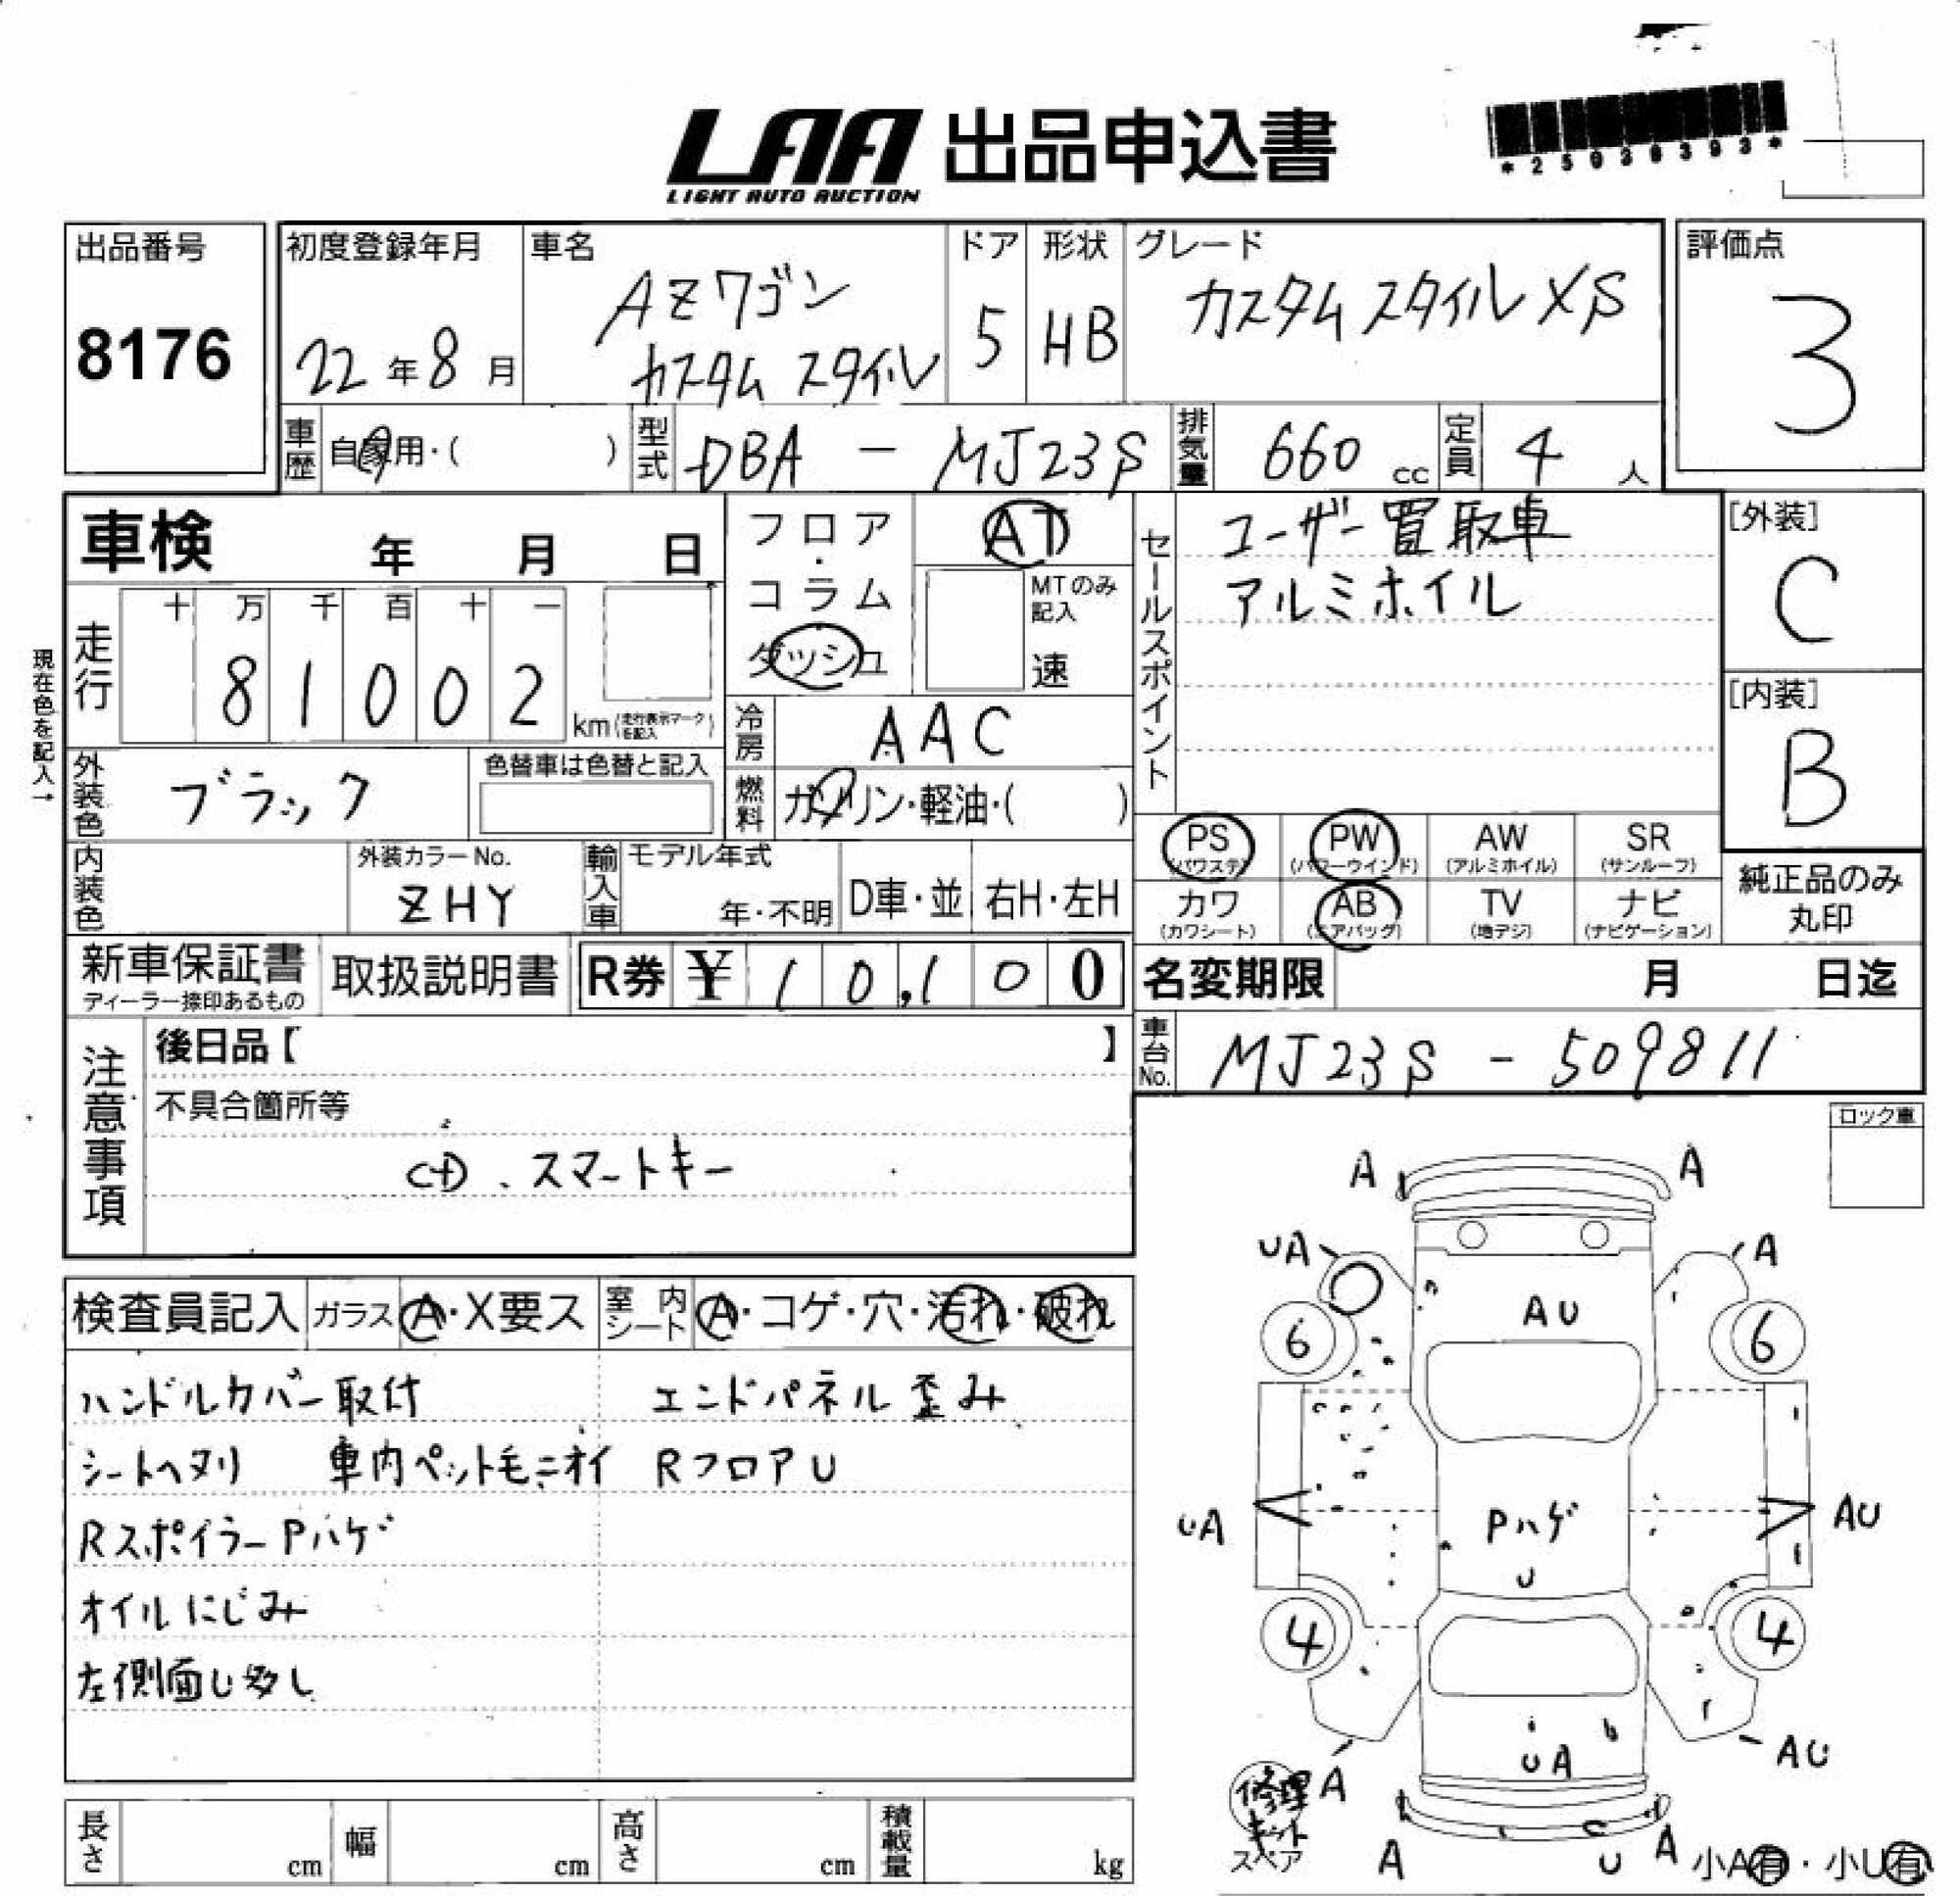 LAA 出品申込書
LIGHT AUTO AUCTION
*25030393*
出品番号
8176
初度登録年月
22年8月
車名
AZワゴン
カスタム スタイル
ドア
5
形状
HB
グレード
カスタム スタイル XS
評価点
3
車歴
自家用・( )
型式
DBA - MJ23S
排気量
660 cc
定員
4 人
車検 年 月 日
フロア
・
コラム
ダッシュ
AT
MTのみ
記入
速
セールスポイント
ユーザー買取車
アルミホイル
[外装]
C
[内装]
B
現在色を記入→
走行
十 万 千 百 十 一
8 1 0 0 2
km(走行表示マークを記入)
冷房
AAC
外装色
ブラック
色替車は色替と記入
燃料
ガソリン・軽油・( )
PS
(パワステ)
PW
(パワーウインド)
AW
(アルミホイル)
SR
(サンルーフ)
カワ
(カワシート)
AB
(エアバッグ)
TV
(地デジ)
ナビ
(ナビゲーション)
純正品のみ
丸印
内装色
外装カラーNo.
ZHY
輸入車
モデル年式
年・不明
D車・並
右H・左H
新車保証書
ディーラー捺印あるもの
取扱説明書
R券 ¥ 10,100
名変期限 月 日迄
車台No.
MJ23S - 509811
注意事項
後日品【 】
不具合箇所等
CD、スマートキー
ロック車
検査員記入
ガラス
A・X要ス
室内シート
A・コゲ・穴・汚れ・破れ
ハンドルカバー取付
エンドパネル歪み
シートヘタリ 車内ペット毛ニオイ
RフロアU
Rスポイラー Pハゲ
オイルにじみ
左側面U多し
A
A
UA
A
AU
6
6
UA
Pハゲ
U
AU
4
4
UA
AU
修理
キット
スペア
A
A
U
A
小A有・小U有
長さ
cm
幅
cm
高さ
cm
積載量
kg